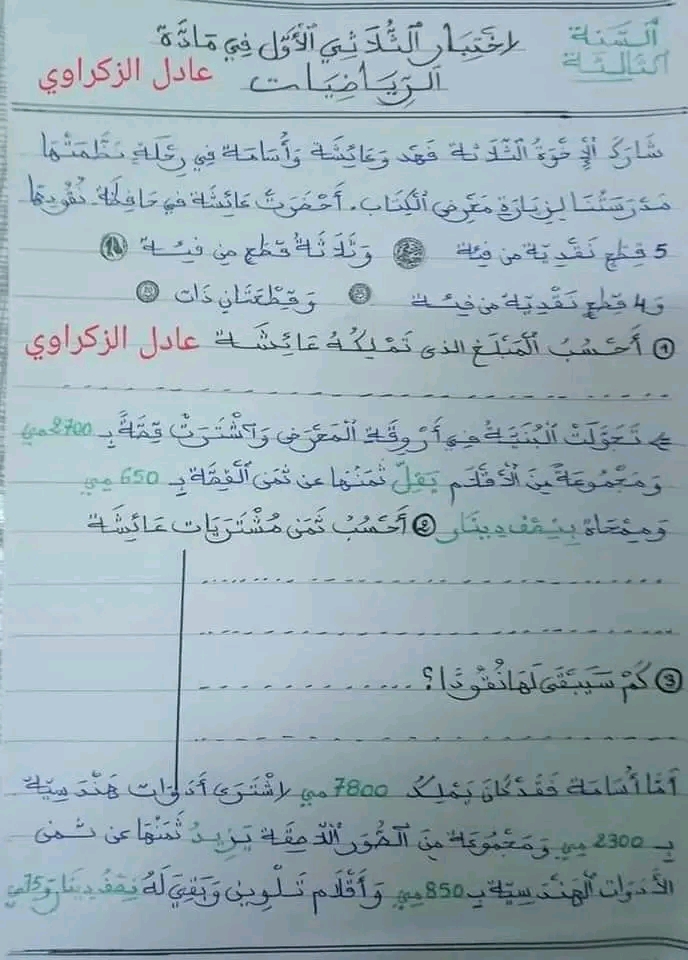 السّنة الثالثة
اختبار الثّلاثي الأوّل في مادّة
الرّياضيات
عادل الزكراوي
شارك الإخوة الثّلاثة فهد وعائشة وأسامة في رحلة نظّمتها
مدرستنا لزيارة معرض الكتاب. أحضرت عائشة في حافظة نقودها
5 قطع نقديّة من فئة وثلاثة قطع من فئة
و4 قطع نقديّة من فئة وقطعتان ذات
① أحسب المبلغ الذي تملكه عائشة
عادل الزكراوي
تحوّلت البنيّة في أروقة المعرض واشترت قصّة بـ 2700 مي
ومجموعة من الأقلام يقلّ ثمنها عن ثمن القصّة بـ 650 مي
وممحاة بنصف دينار ② أحسب ثمن مشتريات عائشة
③ كم سيبقى لها نقودا؟
أمّا أسامة فقد كان يملك 7800 مي اشترى أدوات هندسيّة
بـ 2300 مي ومجموعة من الصّور اللّاصقة يزيد ثمنها عن ثمن
الأدوات الهندسيّة بـ 850 مي وأقلام تلوين وبقي له نصف دينار و